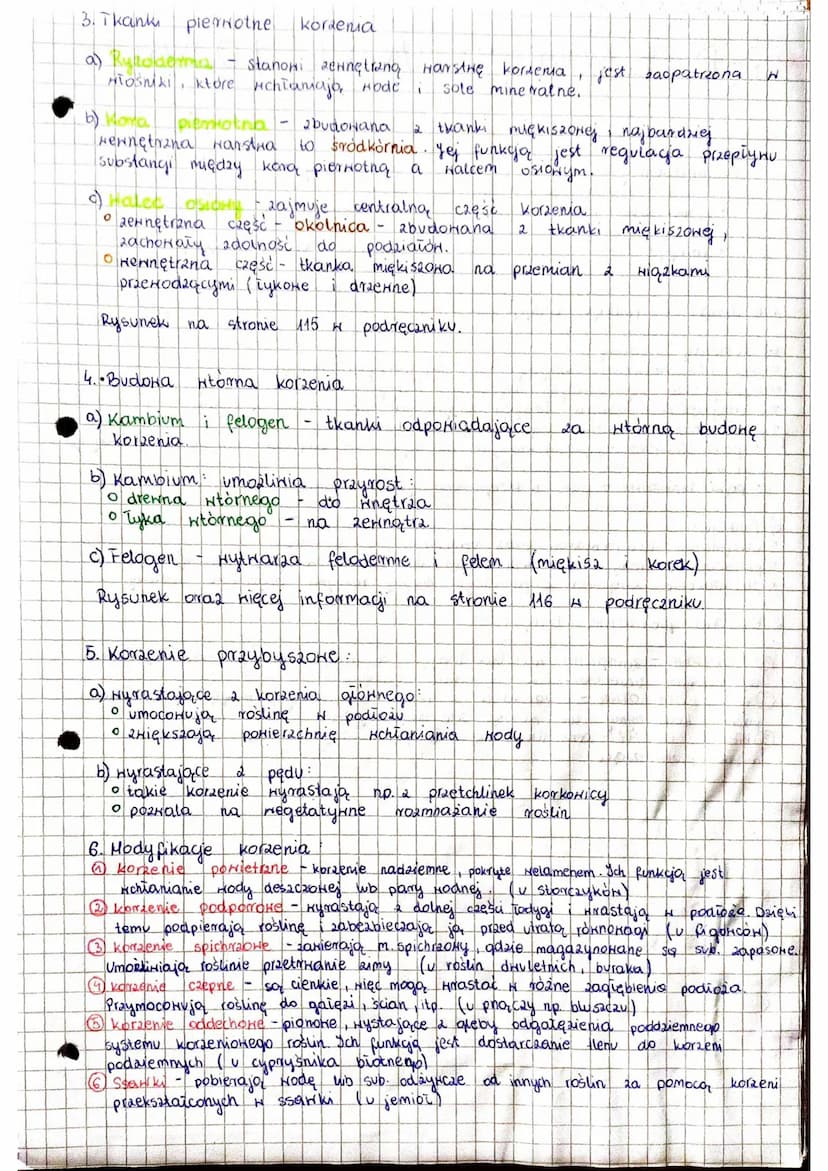 3. Tkanki pierwotne korzenia
a) Ryzoderma - stanowi zewnętrzną warstwę korzenia, jest zaopatrzona w
włośniki, które wchłaniają wodę i sole mineralne.
b) Kora pierwotna - zbudowana z tkanki miękiszowej, najbardziej
wewnętrzna warstwa to śródkórnia. Jej funkcją jest regulacja przepływu
substancji między korą pierwotną a walcem osiowym.
c) Walec osiowy - zajmuje centralną część korzenia
o zewnętrzna część - okolnica - zbudowana z tkanki miękiszowej,
zachowały zdolność do podziałów.
o wewnętrzna część - tkanka miękiszowa na przemian z wiązkami
przewodzącymi (łykowe i drzewne)
Rysunek na stronie 115 w podręczniku.
4. Budowa wtórna korzenia
a) Kambium i felogen - tkanki odpowiadające za wtórną budowę
korzenia.
b) Kambium: umożliwia przyrost:
o drewna wtórnego - do wnętrza
o łyka wtórnego - na zewnątrz
c) Felogen - wytwarza felodermę i felem. (miękisz i korek)
Rysunek oraz więcej informacji na stronie 116 w podręczniku.
5. Korzenie przybyszowe:
a) wyrastające z korzenia głównego:
o umocowują roślinę w podłożu
o zwiększają powierzchnię wchłaniania wody
b) wyrastające z pędu:
o takie korzenie wyrastają np. z przetchlinek korkowicy
o pozwala na wegetatywne rozmnażanie roślin
6. Modyfikacje korzenia:
① korzenie powietrzne - korzenie nadziemne, pokryte welamenem. Ich funkcją jest
wchłanianie wody deszczowej lub pary wodnej. (u storczyków)
② korzenie podporowe - wyrastają z dolnej części łodygi i wrastają w podłoże. Dzięki
temu podpierają roślinę i zabezbieczają ją przed utratą równowagi (u figowców)
③ korzenie spichrzowe - zawierają m. spichrzowy, gdzie magazynowane są sub. zapasowe.
Umożliwiają roślinie przetrwanie zimy (u roślin dwuletnich, buraka)
④ korzenie czepne - są cienkie, więc mogą wrastać w różne zagłębienia podłoża.
Przymocowują roślinę do gałęzi, ścian, itp. (u pnączy np. bluszczu)
⑤ korzenie oddechowe - pionowe, wystające z gleby odgałęzienia poddziemnego
systemu korzeniowego roślin. Ich funkcją jest dostarczanie tlenu do korzeni
podziemnych (u cypryśnika błotnego)
⑥ Ssawki - pobierają wodę lub sub. odżywcze od innych roślin za pomocą korzeni
przekształconych w ssawki (u jemioł)